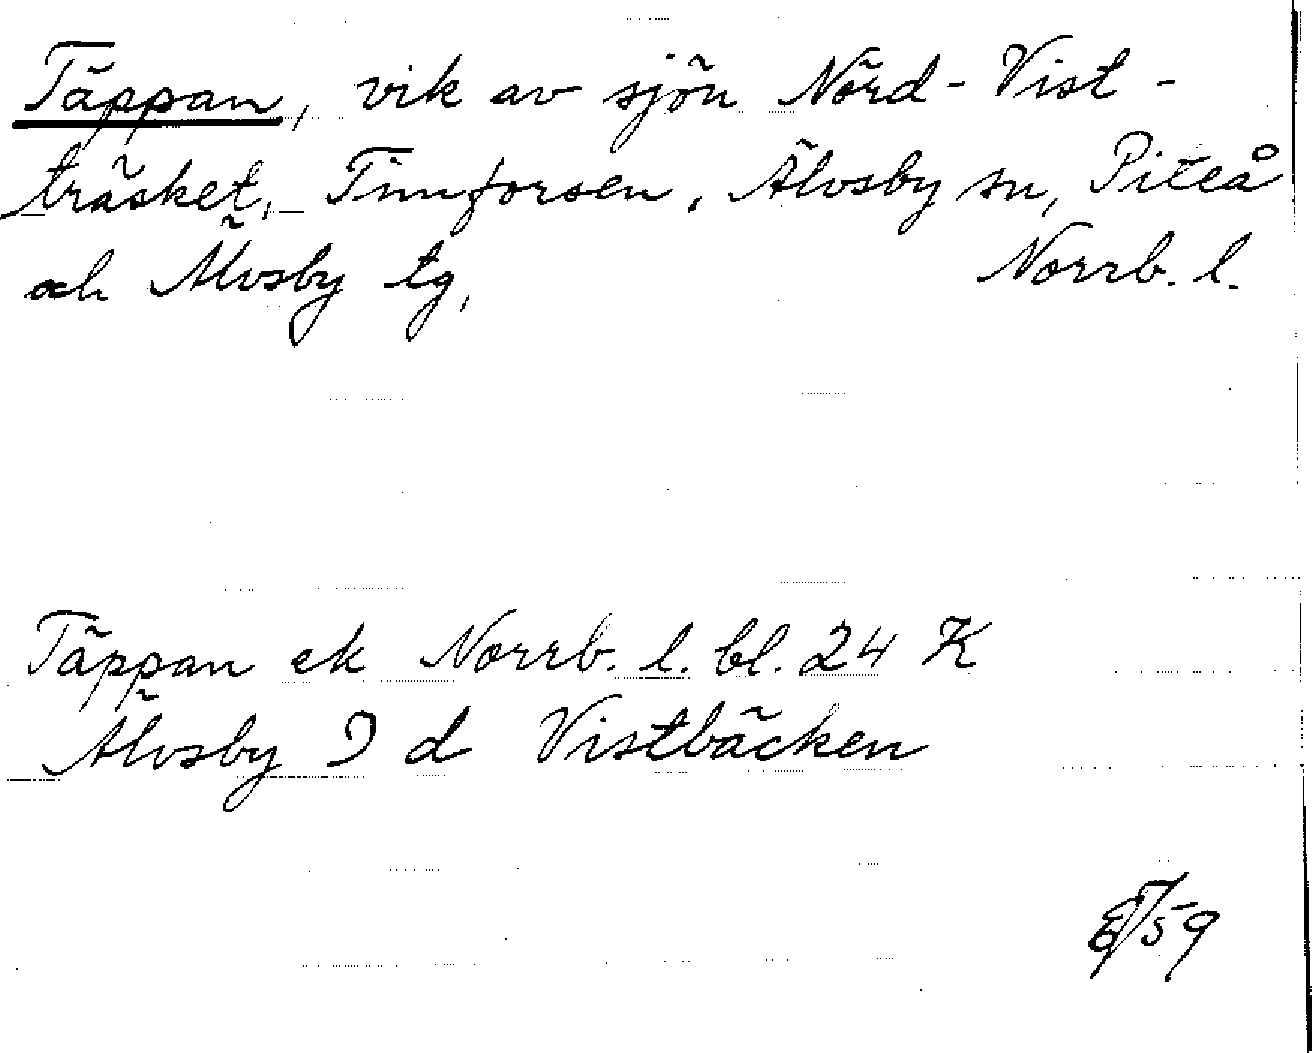 Täppan, vik av sjön Nörd-Vist-
träsket, Timforsen, Älvsby sn, Piteå
och Älvsby tg, Norrb. l.
Täppan ek Norrb. l. bl. 24 K
Älvsby 9 d Vistbäcken
59